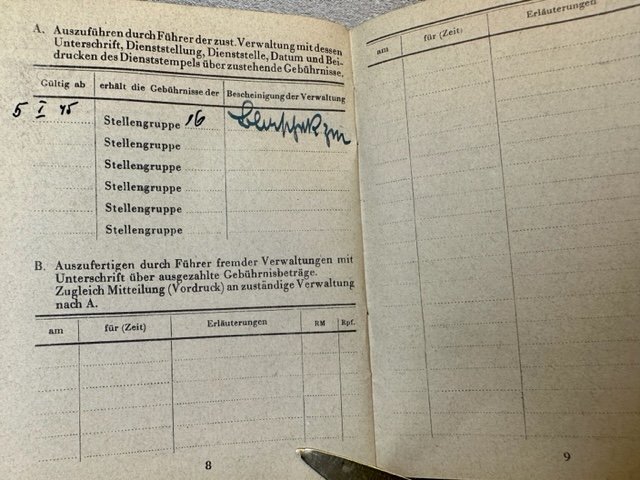 A. Auszuführen durch Führer der zust. Verwaltung mit dessen
Unterschrift, Dienststellung, Dienststelle, Datum und Bei-
drucken des Dienststempels über zustehende Gebührnisse.
Gültig ab erhält die Gebührnisse der Bescheinigung der Verwaltung
5 I 45 Stellengruppe 16
Stellengruppe
Stellengruppe
Stellengruppe
Stellengruppe
Stellengruppe
B. Auszufertigen durch Führer fremder Verwaltungen mit
Unterschrift über ausgezahlte Gebührnisbeträge.
Zugleich Mitteilung (Vordruck) an zuständige Verwaltung
nach A.
am für (Zeit) Erläuterungen RM Rpf.
8
am für (Zeit) Erläuterungen
9